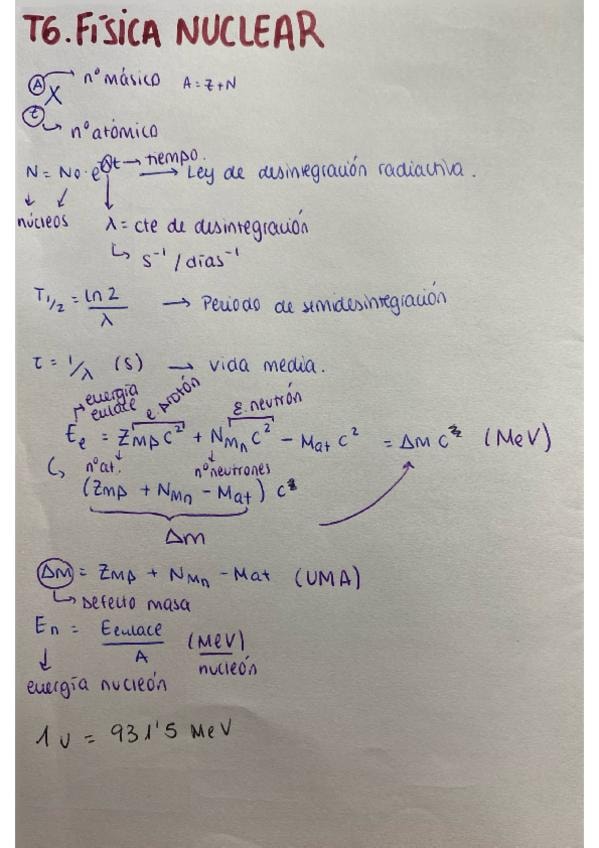 T6. FÍSICA NUCLEAR
A → nº másico A = Z + N
X
Z → nº atómico
N = N0 · e^λt → tiempo. → Ley de desintegración radiactiva.
núcleos λ = cte de desintegración
↳ s⁻¹ / días⁻¹
T1/2 = ln 2 / λ → Periodo de semidesintegración
τ = 1/λ (s) → vida media.
energía enlace e protón E. neutrón
Ee = Zmpc² + Nmnc² - Mat c² = Δm c² (MeV)
nºat. nºneutrones
(Zmp + Nmn - Mat) c²
Δm
Δm = Zmp + Nmn - Mat (UMA)
↳ Defecto masa
En = Eenlace / A (MeV / nucleón)
energía nucleón
1 u = 931'5 MeV